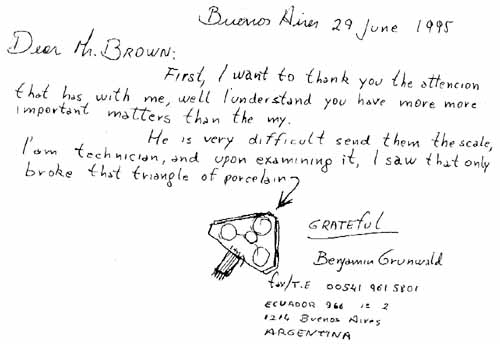 Buenos Aires 29 June 1995
Dear Mr. BROWN:
First, I want to thank you the attencion
that has with me, well I'understand you have more more
important matters than the my.
He is very difficult send them the scale,
I'am technician, and upon examining it, I saw that only
broke that triangle of porcelain
GRATEFUL
Benjamin Grunwald
fax/T.E 00541 961 5801
ECUADOR 966 12 2
1214 Buenos Aires
ARGENTINA